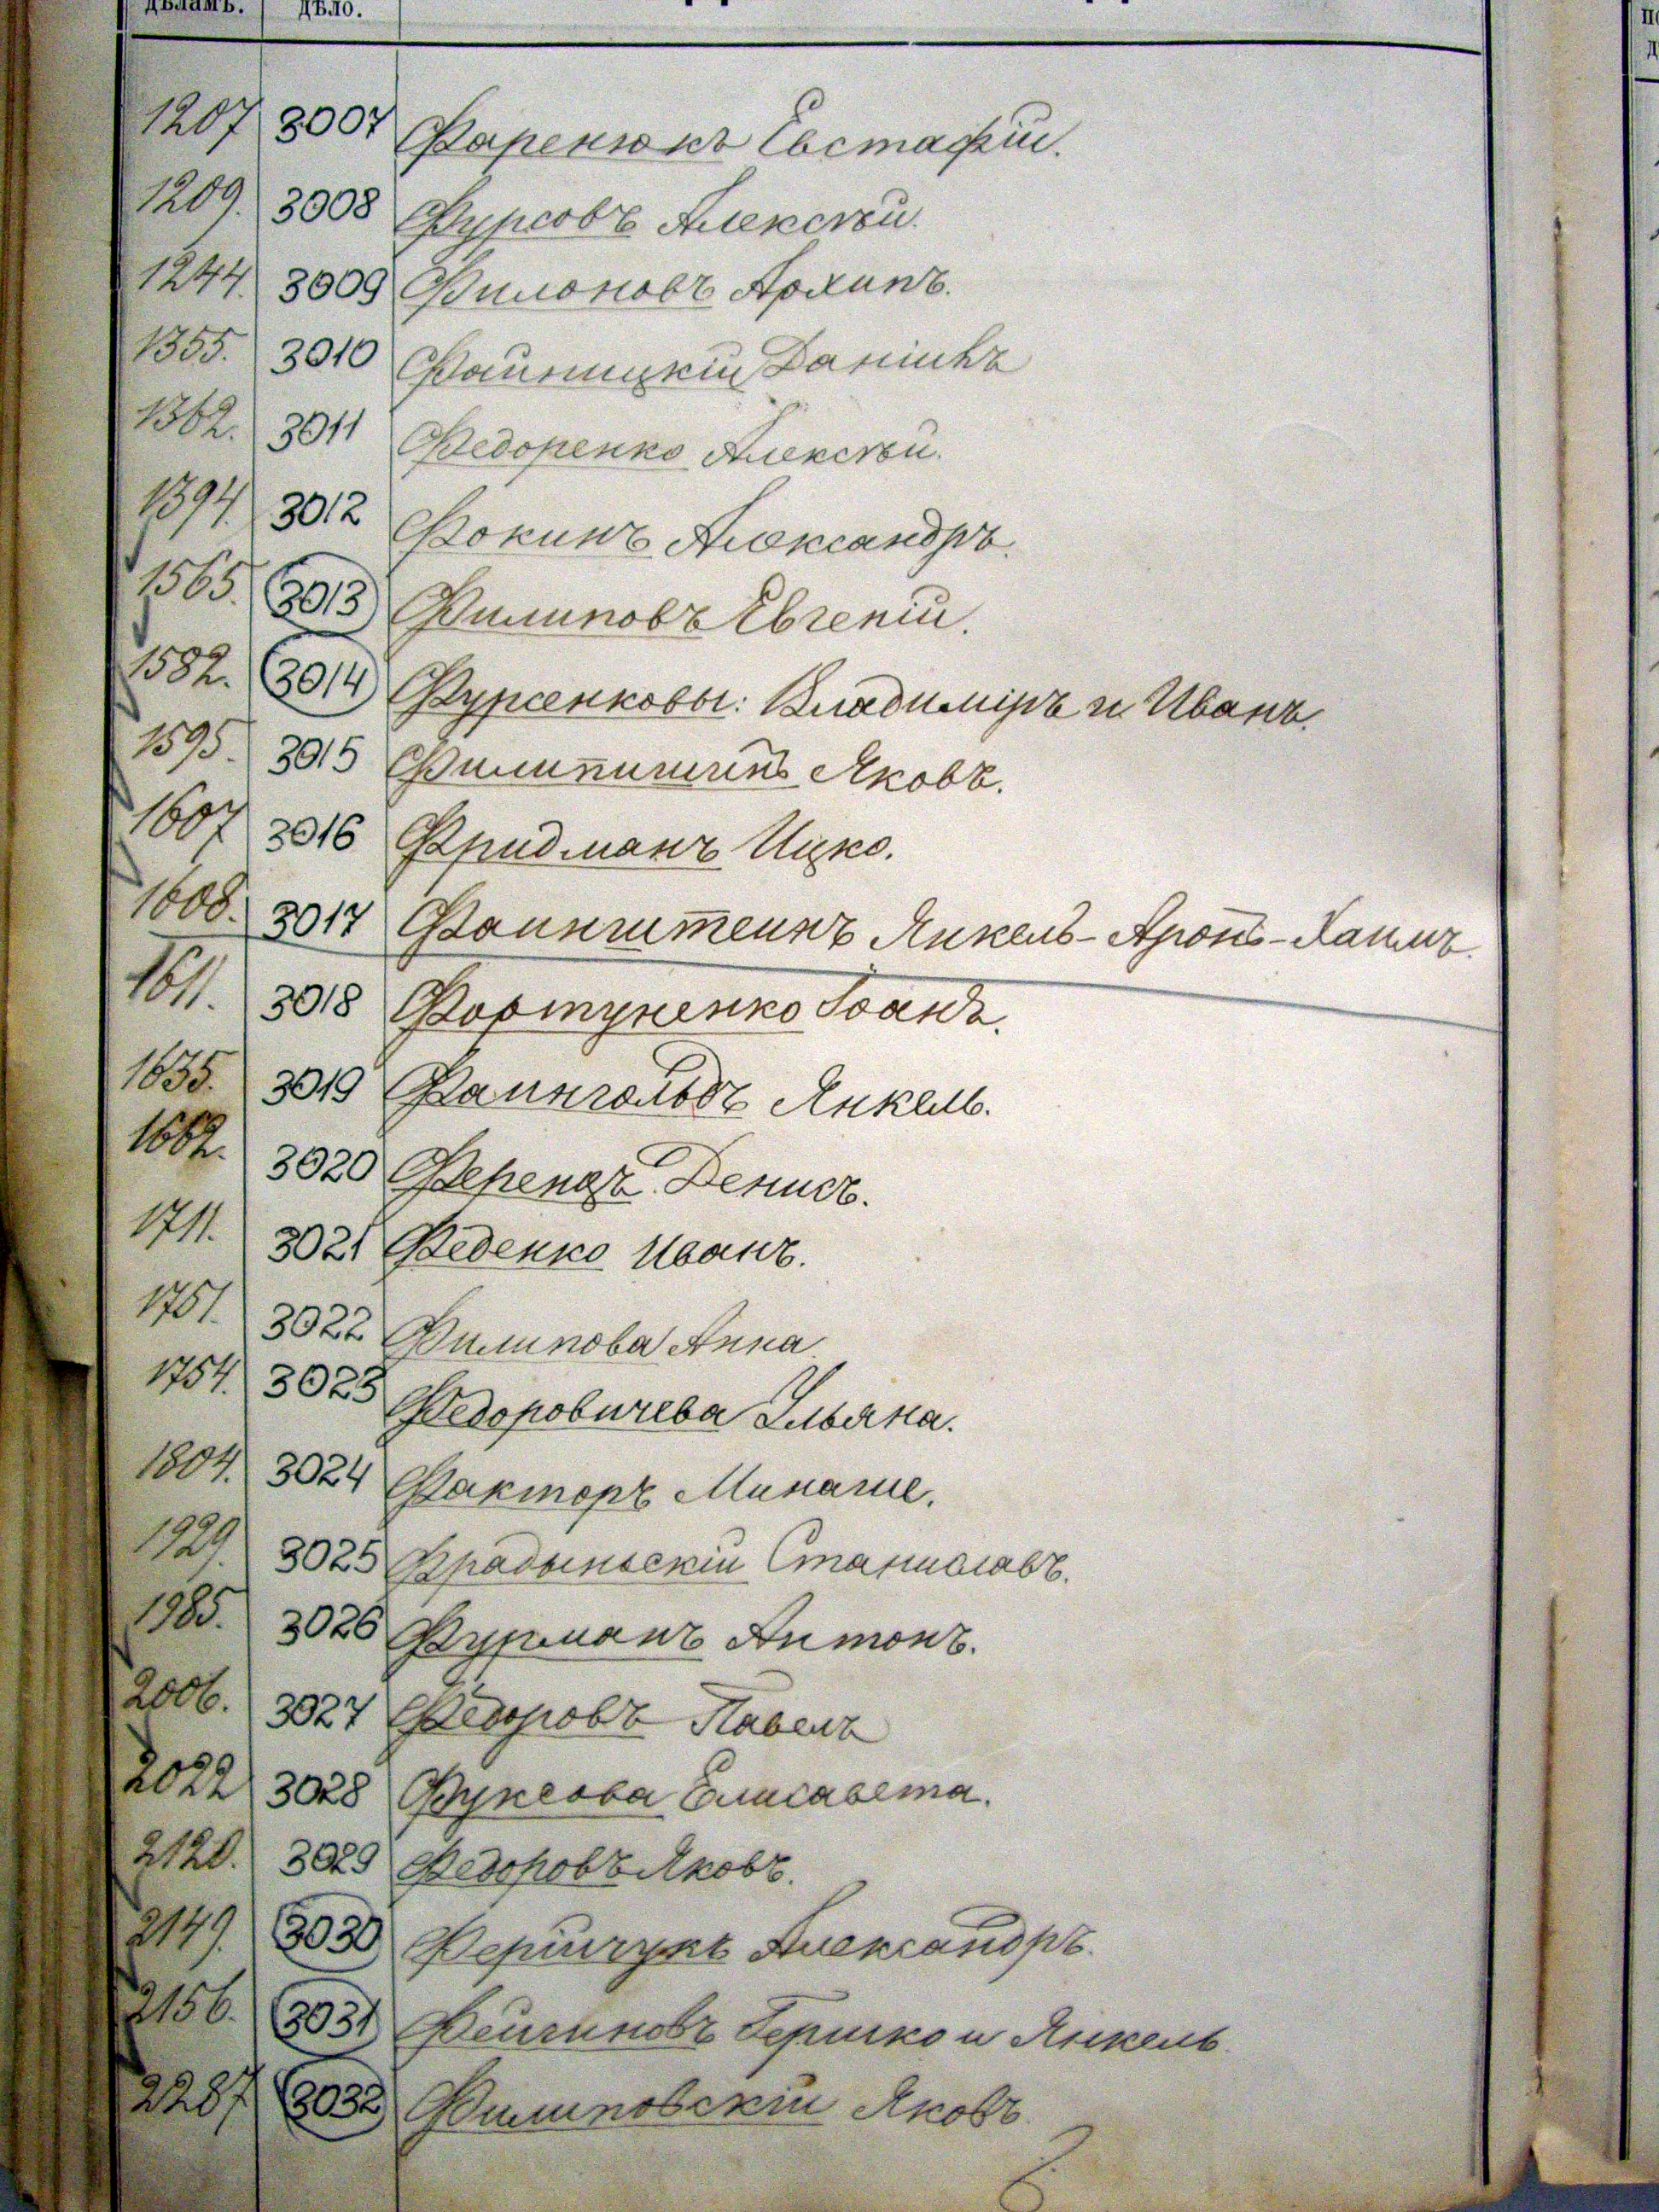 дѣламъ. дѣло.
1207 3007 Фаренюкъ Евстафій.
1209. 3008 Фурсовъ Алексѣй.
1244. 3009 Филоновъ Архипъ.
1355. 3010 Файницкій Даніилъ
1362. 3011 Федоренко Алексѣй.
1394. 3012 Фокинъ Александръ.
1565. 3013 Филиповъ Евгеній.
1582. 3014 Фурсенковы: Владиміръ и Иванъ.
1595. 3015 Филипишинъ Яковъ.
1607 3016 Фридманъ Ицко.
1608. 3017 Фаинштеинъ Янкель-Аронъ-Хаимъ.
1611. 3018 Фортуненко Іоанъ.
1635. 3019 Фаингольдъ Янкель.
1662. 3020 Ференцъ Денисъ.
1711. 3021 Феденко Иванъ.
1751. 3022 Филипова Анна
1754. 3023 Федоровичева Ульяна.
1804. 3024 Факторъ Минаше.
1929. 3025 Фрадыньскій Станиславъ.
1985. 3026 Фурманъ Антонъ.
2006. 3027 Федоровъ Павелъ
2022 3028 Фуксова Елисавета.
2120. 3029 Федоровъ Яковъ.
2149. 3030 Александръ.
2156. 3031 Фейгиновъ Гершко и Янкель.
2287 3032 Филиповскій Яковъ